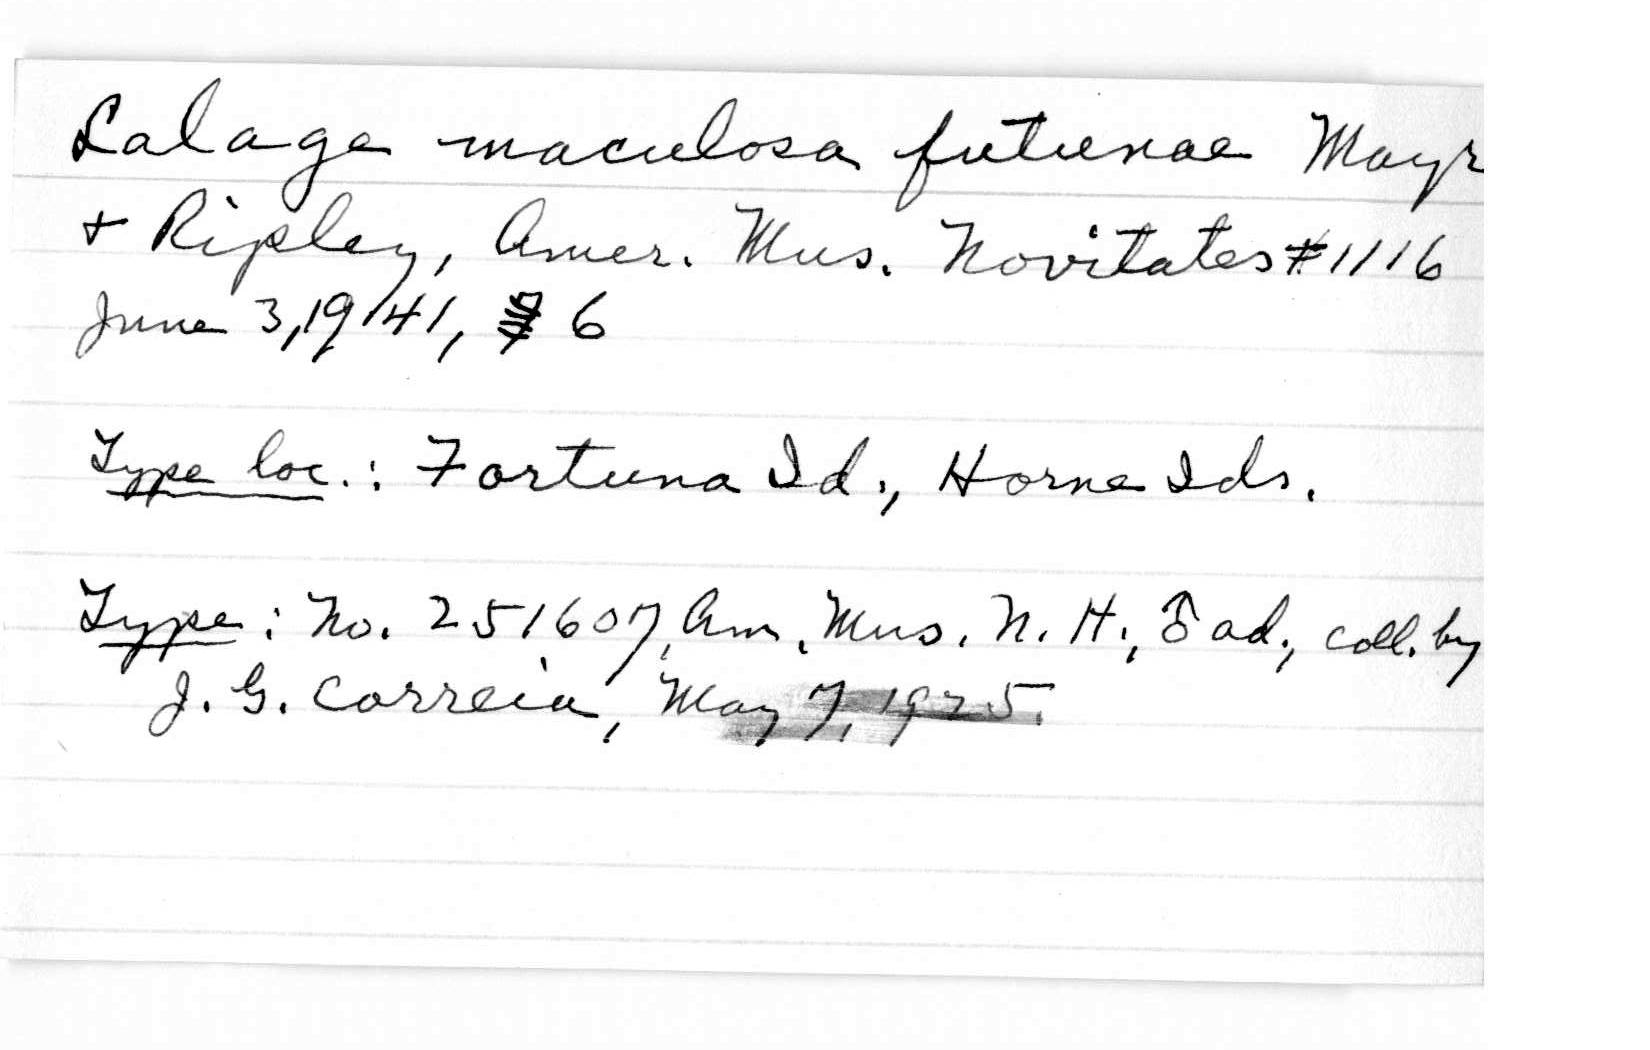 Lalage maculosa futunae Mayr
+ Ripley, Amer. Mus. Novitates #1116
June 3, 1941, 6
Type loc.: Fortuna Id., Horne Ids.
Type: No. 251607, Am. Mus. N. H., ♂ ad., coll. by
J. G. Correia, May 7, 1925.